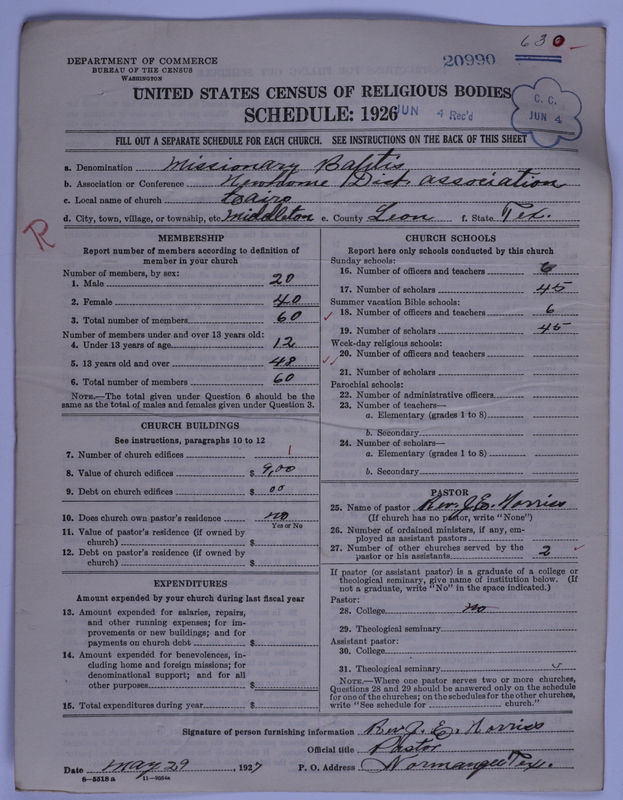 630-
20990
DEPARTMENT OF COMMERCE
BUREAU OF THE CENSUS
WASHINGTON
UNITED STATES CENSUS OF RELIGIOUS BODIES
SCHEDULE: 1926
JUN 4 Rec'd
C. C.
JUN 4
FILL OUT A SEPARATE SCHEDULE FOR EACH CHURCH. SEE INSTRUCTIONS ON THE BACK OF THIS SHEET
a. Denomination Missionary Baptis
b. Association or Conference Newhome Dist. association
c. Local name of church Cairo
d. City, town, village, or township, etc. Middleton e. County Leon f. State Tex.
R
MEMBERSHIP
Report number of members according to definition of
member in your church
Number of members, by sex:
1. Male 20
2. Female 40
3. Total number of members 60
Number of members under and over 13 years old:
4. Under 13 years of age 12
5. 13 years old and over 48
6. Total number of members 60
NOTE.—The total given under Question 6 should be the
same as the total of males and females given under Question 3.
CHURCH BUILDINGS
See instructions, paragraphs 10 to 12
7. Number of church edifices 1
8. Value of church edifices $ 9,00
9. Debt on church edifices $ 00
10. Does church own pastor's residence no
Yes or No
11. Value of pastor's residence (if owned by
church) $
12. Debt on pastor's residence (if owned by
church) $
EXPENDITURES
Amount expended by your church during last fiscal year
13. Amount expended for salaries, repairs,
and other running expenses; for im-
provements or new buildings; and for
payments on church debt $
14. Amount expended for benevolences, in-
cluding home and foreign missions; for
denominational support; and for all
other purposes $
15. Total expenditures during year $
CHURCH SCHOOLS
Report here only schools conducted by this church
Sunday schools:
16. Number of officers and teachers 6
17. Number of scholars 45
Summer vacation Bible schools:
18. Number of officers and teachers 6
19. Number of scholars 45
Week-day religious schools:
20. Number of officers and teachers
21. Number of scholars
Parochial schools:
22. Number of administrative officers
23. Number of teachers—
a. Elementary (grades 1 to 8)
b. Secondary
24. Number of scholars—
a. Elementary (grades 1 to 8)
b. Secondary
PASTOR
25. Name of pastor Rev. J. E. Norriss
(If church has no pastor, write "None")
26. Number of ordained ministers, if any, em-
ployed as assistant pastors
27. Number of other churches served by the
pastor or his assistants 2
If pastor (or assistant pastor) is a graduate of a college or
theological seminary, give name of institution below. (If
not a graduate, write "No" in the space indicated.)
Pastor:
28. College no
29. Theological seminary
Assistant pastor:
30. College
31. Theological seminary
NOTE.—Where one pastor serves two or more churches,
Questions 28 and 29 should be answered only on the schedule
for one of the churches; on the schedules for the other churches,
write "See schedule for church."
Signature of person furnishing information Rev. J. E. Norriss
Official title Pastor
Date may 29, 1927 P. O. Address Normangee Tex.
8—5518 a 11—9954a